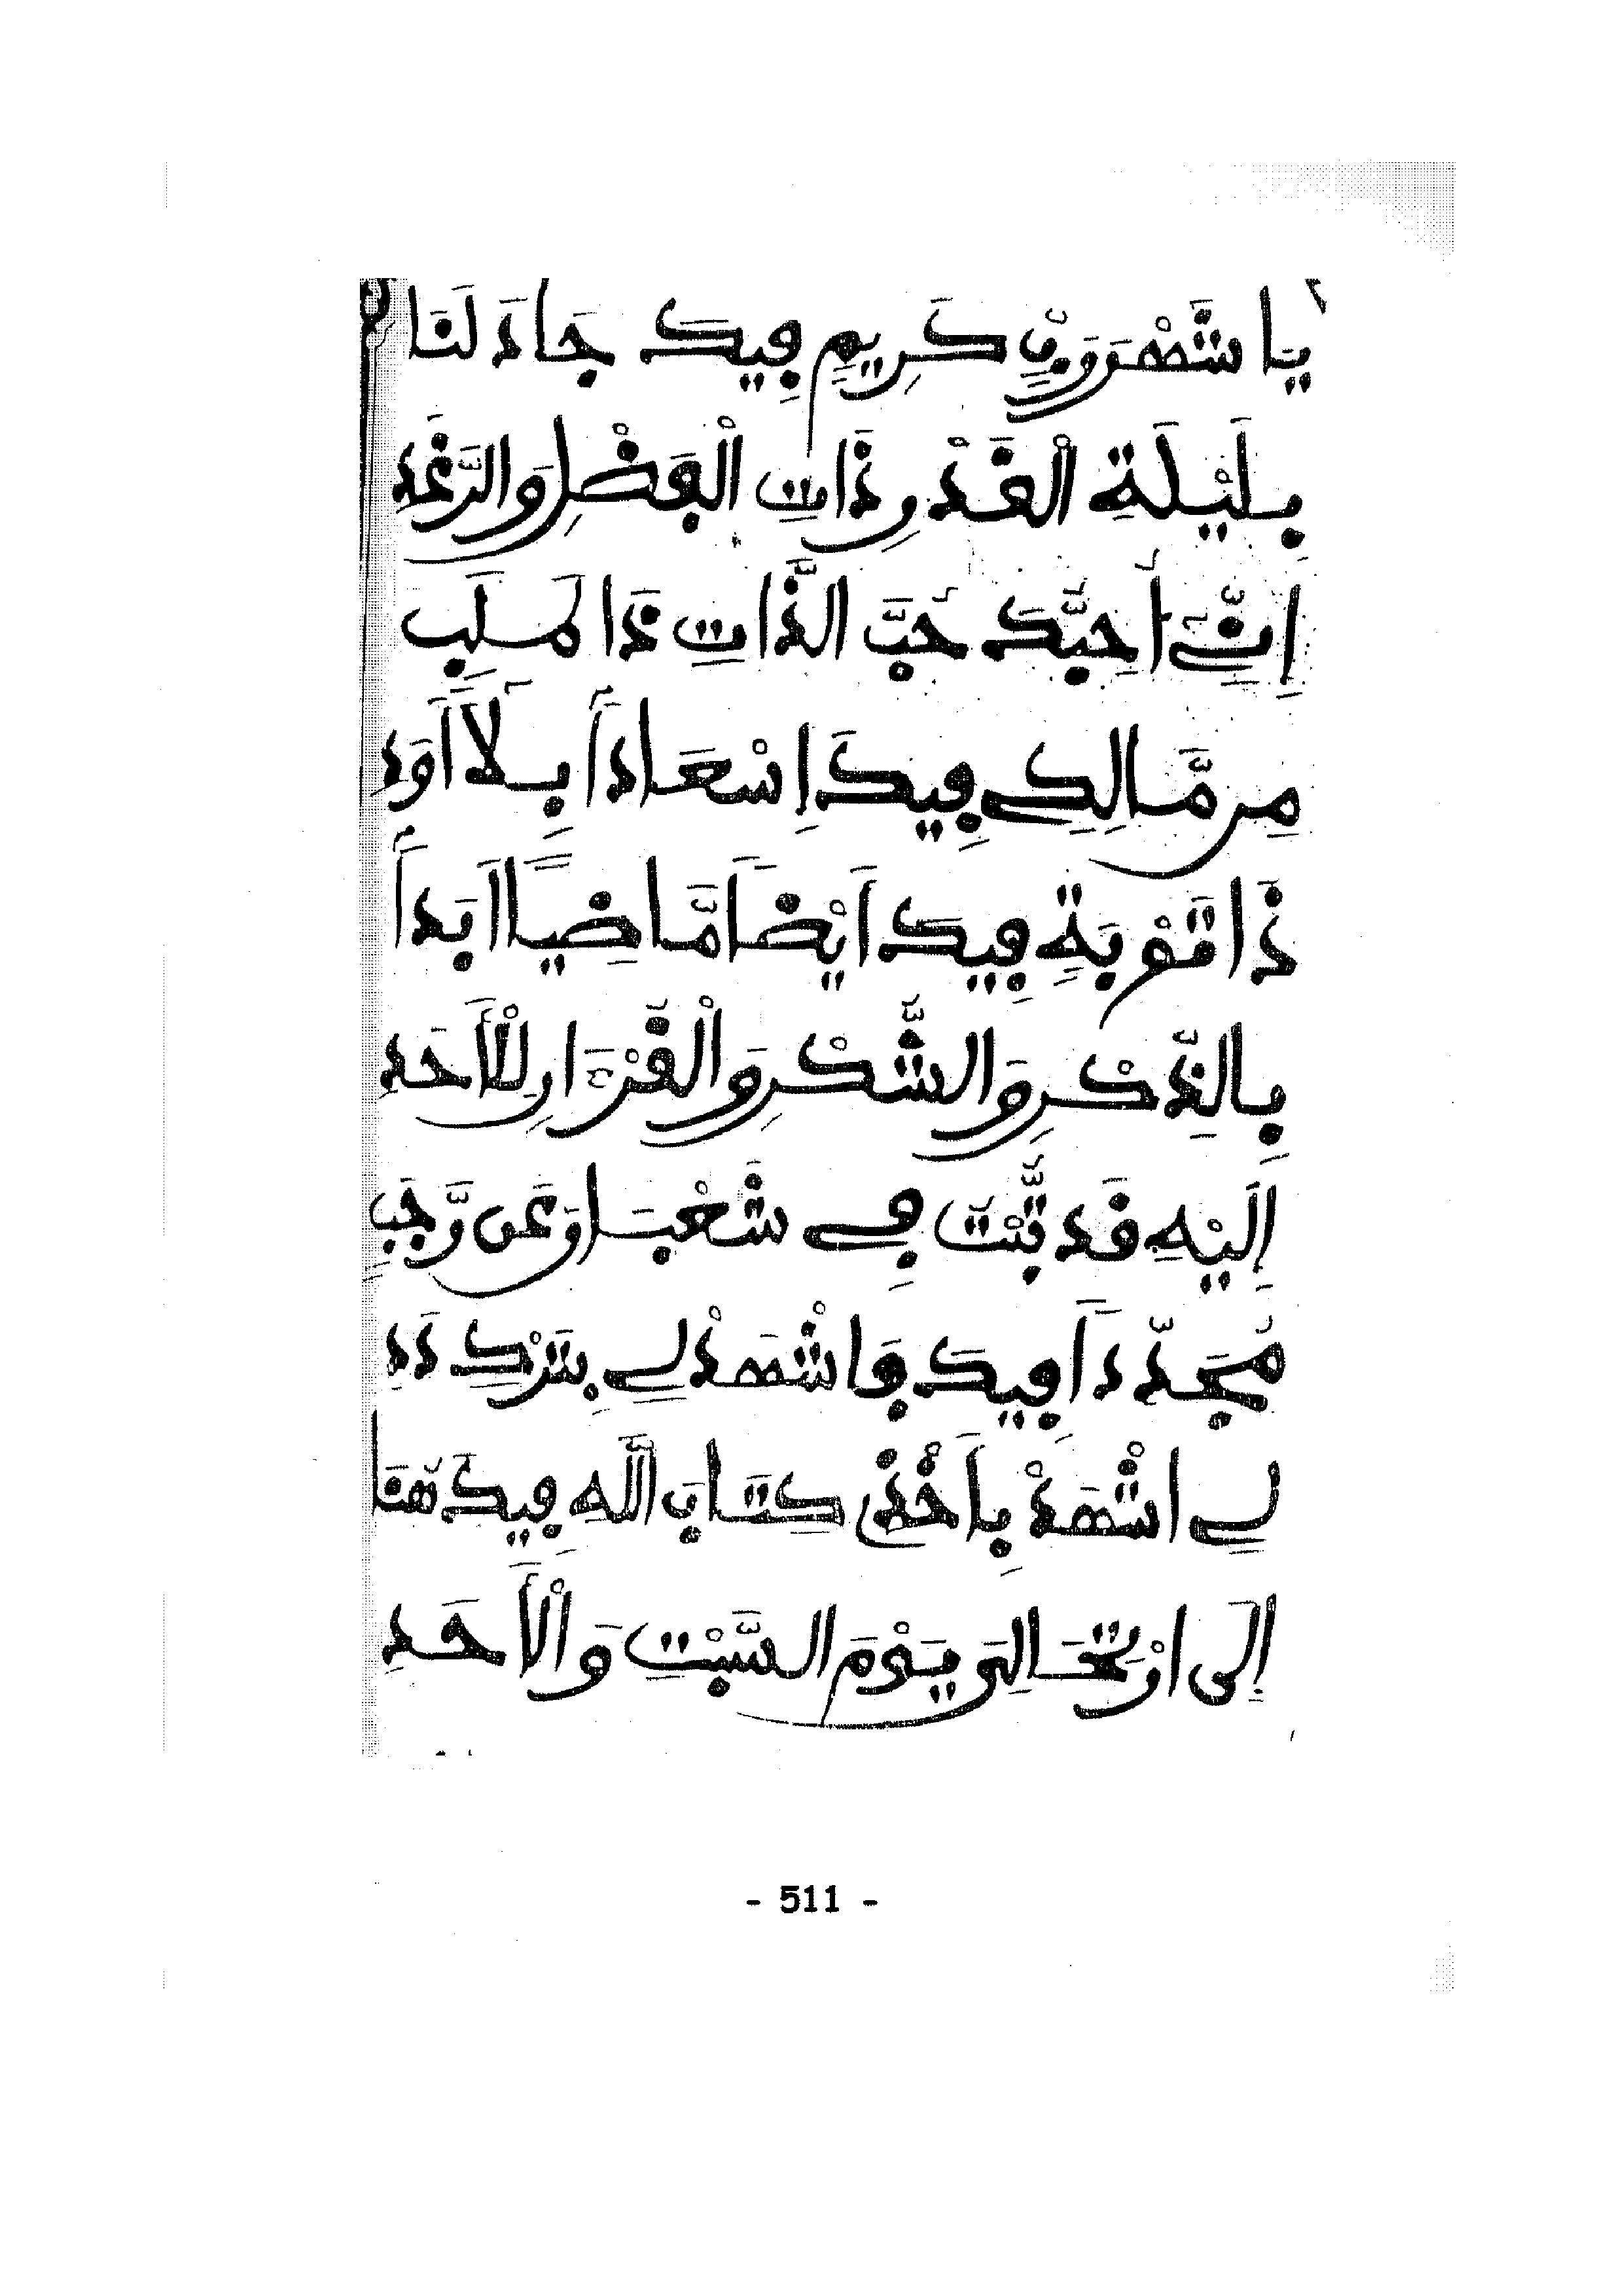 يَا شَهْرَ رَبٍّ كَرِيمٍ فِيكَ جَادَ لَنَا
بِلَيْلَةِ الْقَدْرِ ذَاتِ الْفَضْلِ وَالرَّغَدِ
إِنِّي أُحِبُّكَ حُبَّ الذَّاتِ ذَا طَلَبِ
مِن مَّالِكِي فِيكَ إِسْعَادًا بِلَا أَوَدِ
ذَا تَوْبَةٍ فِيكَ أَيْضًا مَّاضِيًا أَبَدًا
بِالذِّكْرِ وَالشُّكْرِ وَالْقُرْءَانِ لِلْأَحَدِ
إِلَيْهِ قَد تُّبْتُ فِي شَعْبَانَ عَن رَّجَبٍ
مُجَدِّدًا فِيكَ فَاشْهَدْ لِي بِتَرْكِ دَدِ
لِي اشْهَدْ بِأَخْذِي كِتَابَ اللَّهِ فِيكَ هُنَا
إِلَى ارْتِحَالِيَ يَوْمَ السَّبْتِ وَالْأَحَدِ
- 511 -